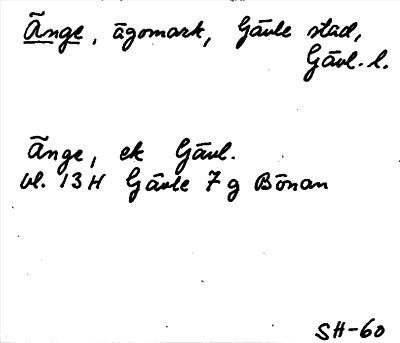 Änge, ägomark, Gävle stad,
Gävl. l.
Änge, ek Gävl.
bl. 13H Gävle 7g Bönan
SH-60